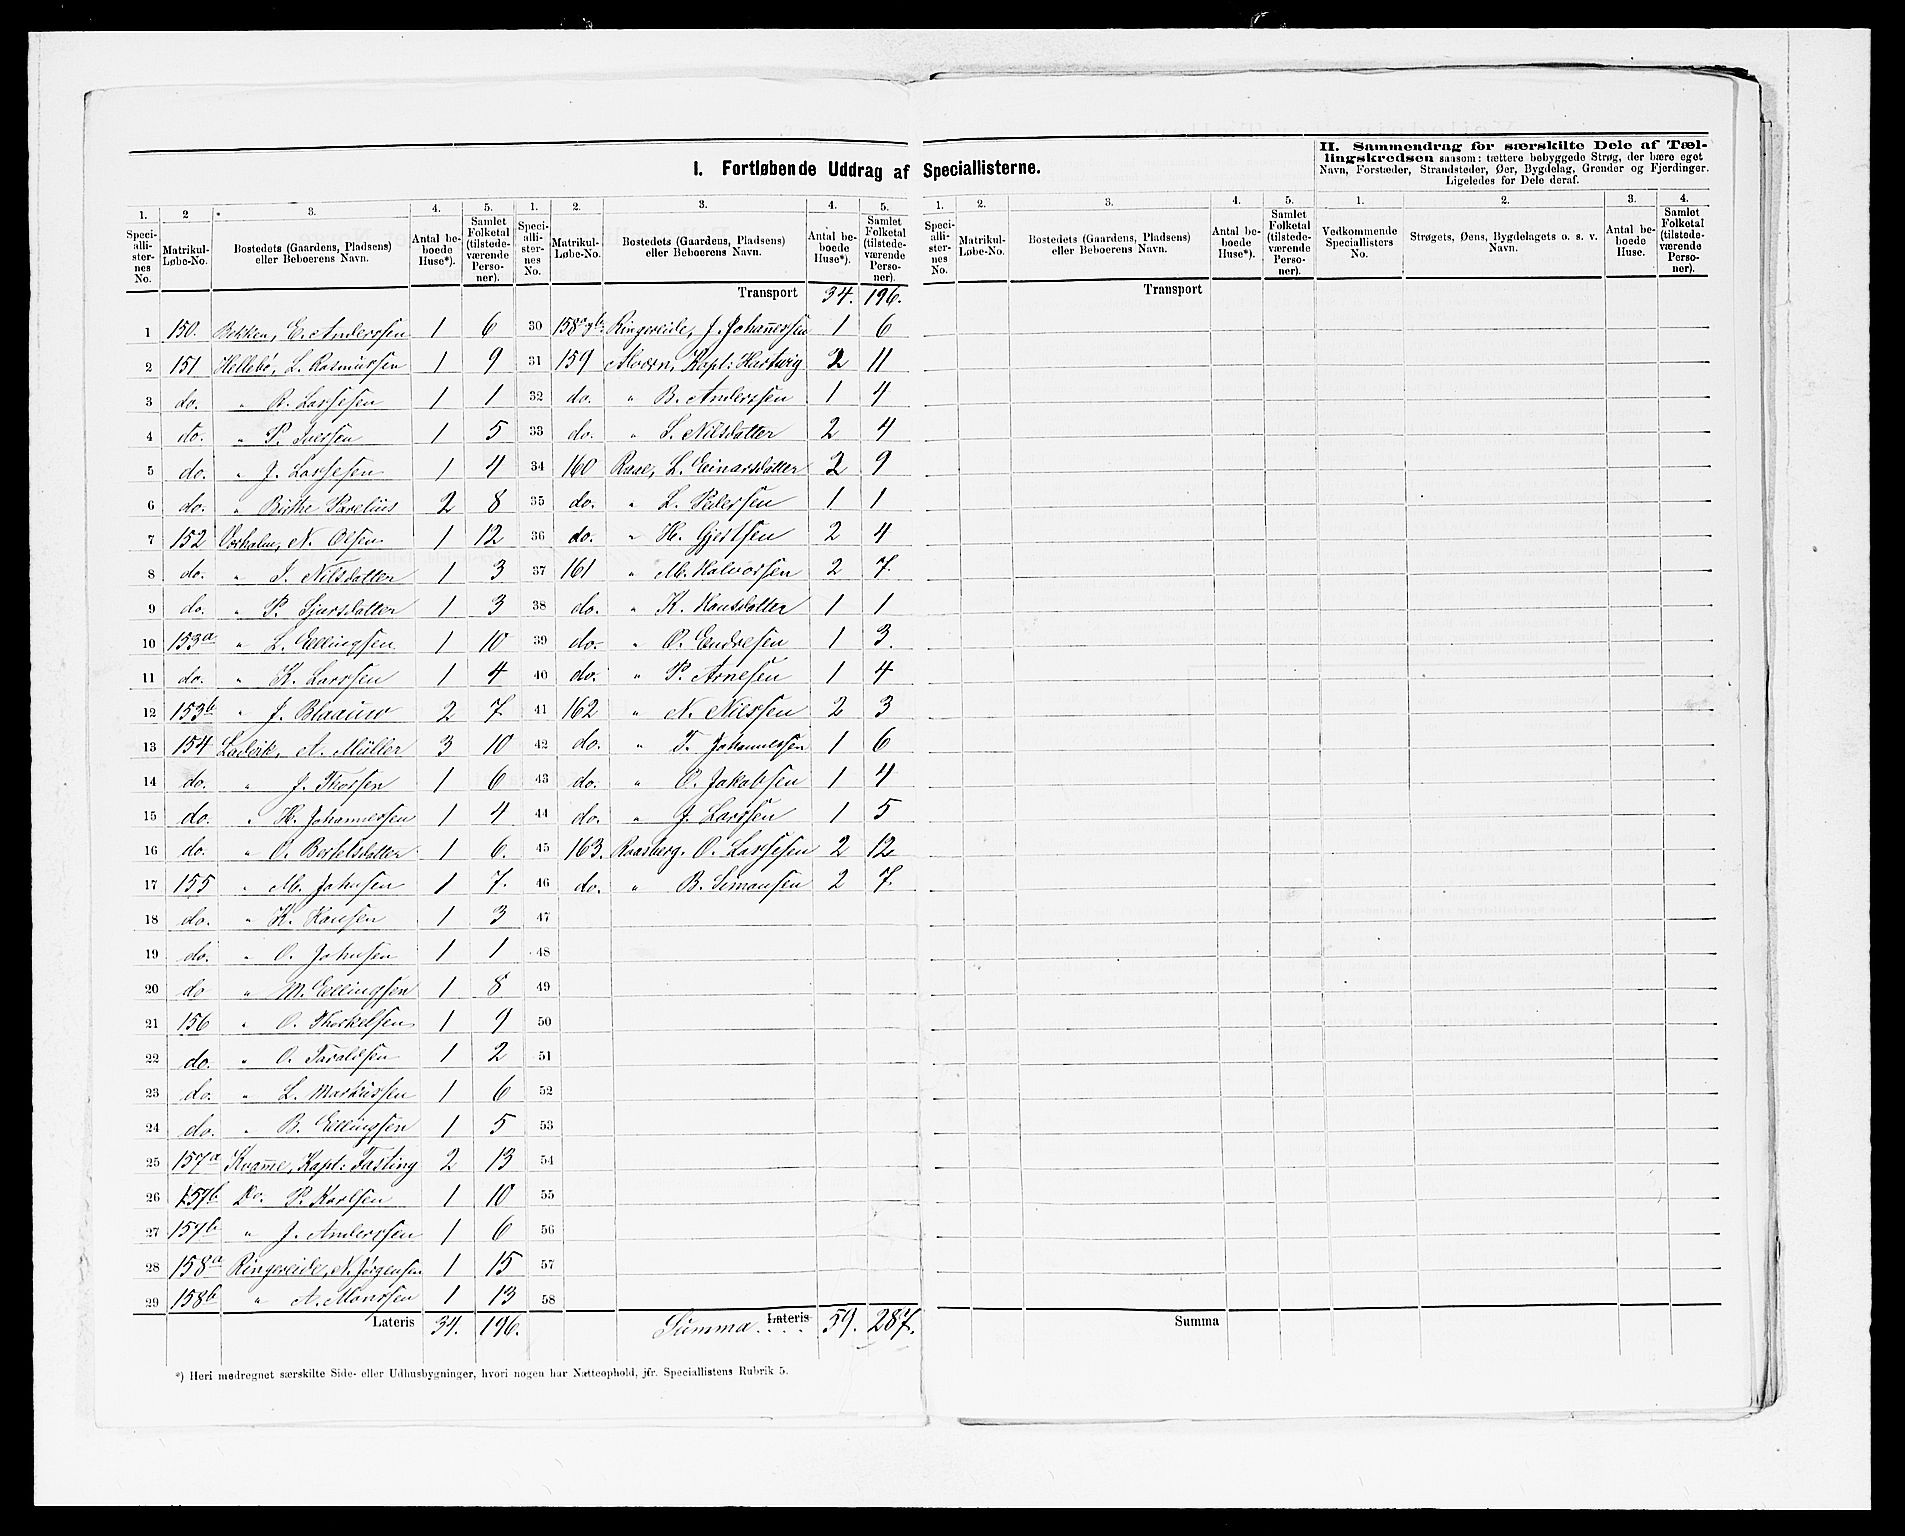 I. Fortløbende Uddrag af Speciallisterne.
II. Sammendrag for særskilte Dele af Tællingskredsen saasom: tættere bebyggede Strøg, der bære eget
Navn, Forstæder, Strandsteder, Øer, Bygdelag, Grender og Fjerdinger.
Ligeledes for Dele deraf.
1. 2 3. 4. 5. 1. 2. 3. 4. 5. 1. 2. 3. 4. 5. 1. 2. 3. 4.
Speciallisternes No. Matrikul-Løbe-No. Bostedets (Gaardens, Pladsens) eller Beboerens Navn. Antal beboede Huse*). Samlet Folketal (tilstedeværende Personer).
Speciallisternes No. Matrikul-Løbe-No. Bostedets (Gaardens, Pladsens) eller Beboerens Navn. Antal beboede Huse*). Samlet Folketal (tilstedeværende Personer).
Speciallisternes No. Matrikul-Løbe-No. Bostedets (Gaardens, Pladsens) eller Beboerens Navn. Antal beboede Huse*). Samlet Folketal (tilstedeværende Personer).
Vedkommende Speciallisters No. Strøgets, Øens, Bygdelagets o. s. v. Navn. Antal beboede Huse. Samlet Folketal (tilstedeværende Personer).
1 150. Bekken, E. Anderssen 1 6
2 151 Hellebø, L. Rasmussen 1 9
3 do. " R. Lassesen 1 1
4 do. " P. Iversen 1 5
5 do. " J. Lassesen 1 4
6 do. " Birthe Parelius 2 8
7 152 N. Olsen 1 12
8 do. " I. Nilsdatter 1 3
9 do. " P. Sjursdatter 1 3
10 153a " L. Ellingsen 1 10
11 do. " K. Larssen 1 4
12 153b " J. Blaauw 2 7
13 154 Ladvik, A. Müller 3 10
14 do. " J. Thorsen 1 6
15 do. " H. Johannessen 1 4
16 do. " O. Bertelsdatter 1 6.
17 155 " M. Johnsen 1 7.
18 do. " K. Hansen 1 3
19 do. " O. Johnsen 1 1
20 do " M. Ellingsen 1 8
21 156 " O. Thorkelsen 1 9
22 do. " O. Taraldsen 1 2
23 do. " L. Markussen 1 6
24 do. " B. Ellingsen 1 5
25 157a Kvamme, Kapt: Fasting 2 13
26 157b Do. P. Karlsen 1 10
27 157b " J. Anderssen 1 6
28 158a Ringereide, N. Jørgensen 1 15
29 158b " A. Monssen 1 13
Lateris 34. 196.
Transport 34. 196.
30 158a Ringereide, J. Johannessen 1 6
31 159 Alværn, Kapt: Hartwig 2 11
32 do. " B. Anderssen 1 4
33 do. " S. Nilsdatter 2 4
34 160 Raae, L. Einarsdatter 2 9
35 do. " L. Pedersen 1 1
36 do. " H. Gjertsen 2 4
37 161 " M. Halvorsen 2 7.
38 do. " K. Hansdatter 1 1
39 do. " O. Endresen 1 3.
40 do. " P. Arnesen 1 4
41 162 " N. Nilssen 2 3
42 do. " T. Johannessen 1 6
43 do. " O. Jakobsen 1 4
44 do. " J. Larssen 1 5
45 163. Raasberg. O. Lassesen 2 12
46 do. " B. Simonsen 2 7.
47
48
49
50
51
52
53
54
55
56
57
58
Lateris Summa .... 59. 287.
Transport
Summa
*) Heri medregnet særskilte Side- eller Udhusbygninger, hvori nogen har Natteophold, jfr. Speciallistens Rubrik 5.